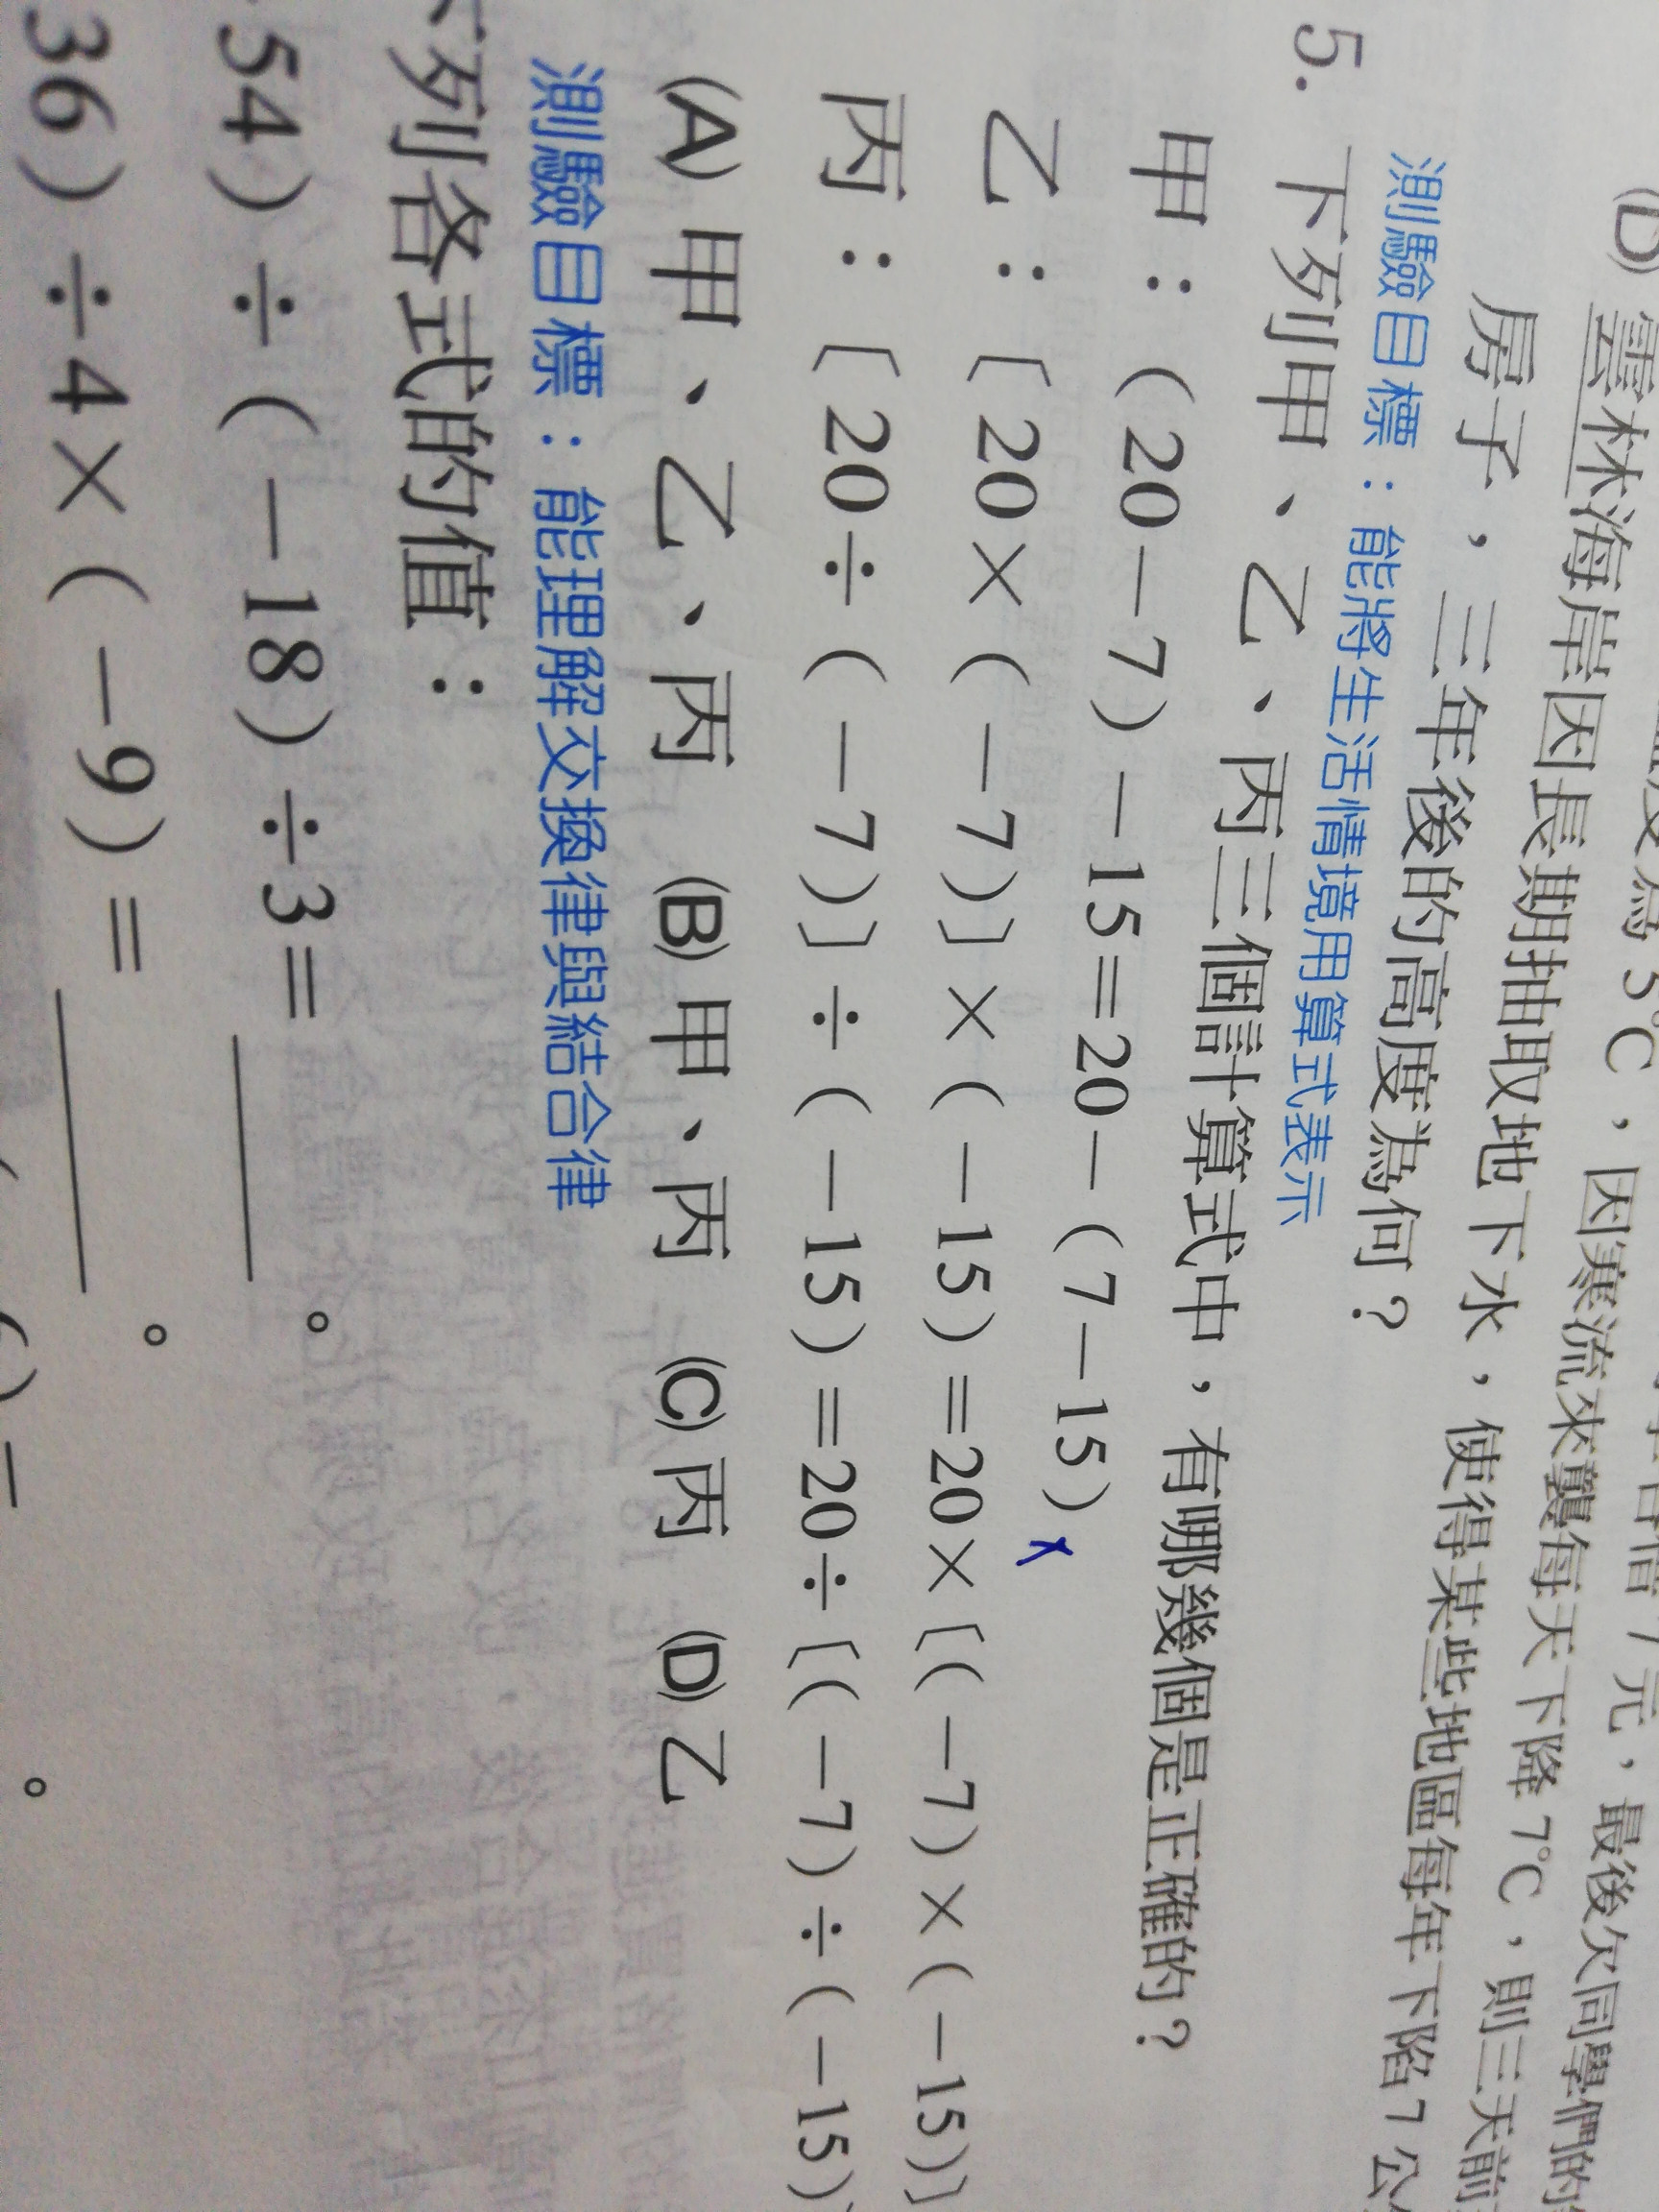 為 5℃，因寒流來襲每天下降 7℃，則三天前
(D) 雲林海岸因長期抽取地下水，使得某些地區每年下陷 7 公
房子，三年後的高度為何？
測驗目標：能將生活情境用算式表示
5. 下列甲、乙、丙三個計算式中，有哪幾個是正確的？
甲：(20－7)－15＝20－(7－15)
乙：〔20×(－7)〕×(－15)＝20×〔(－7)×(－15)〕
丙：〔20÷(－7)〕÷(－15)＝20÷〔(－7)÷(－15)
(A) 甲、乙、丙 (B) 甲、丙 (C) 丙 (D) 乙
測驗目標：能理解交換律與結合律
下列各式的值：
54)÷(－18)÷3＝＿＿＿。
36)÷4×(－9)＝＿＿＿。